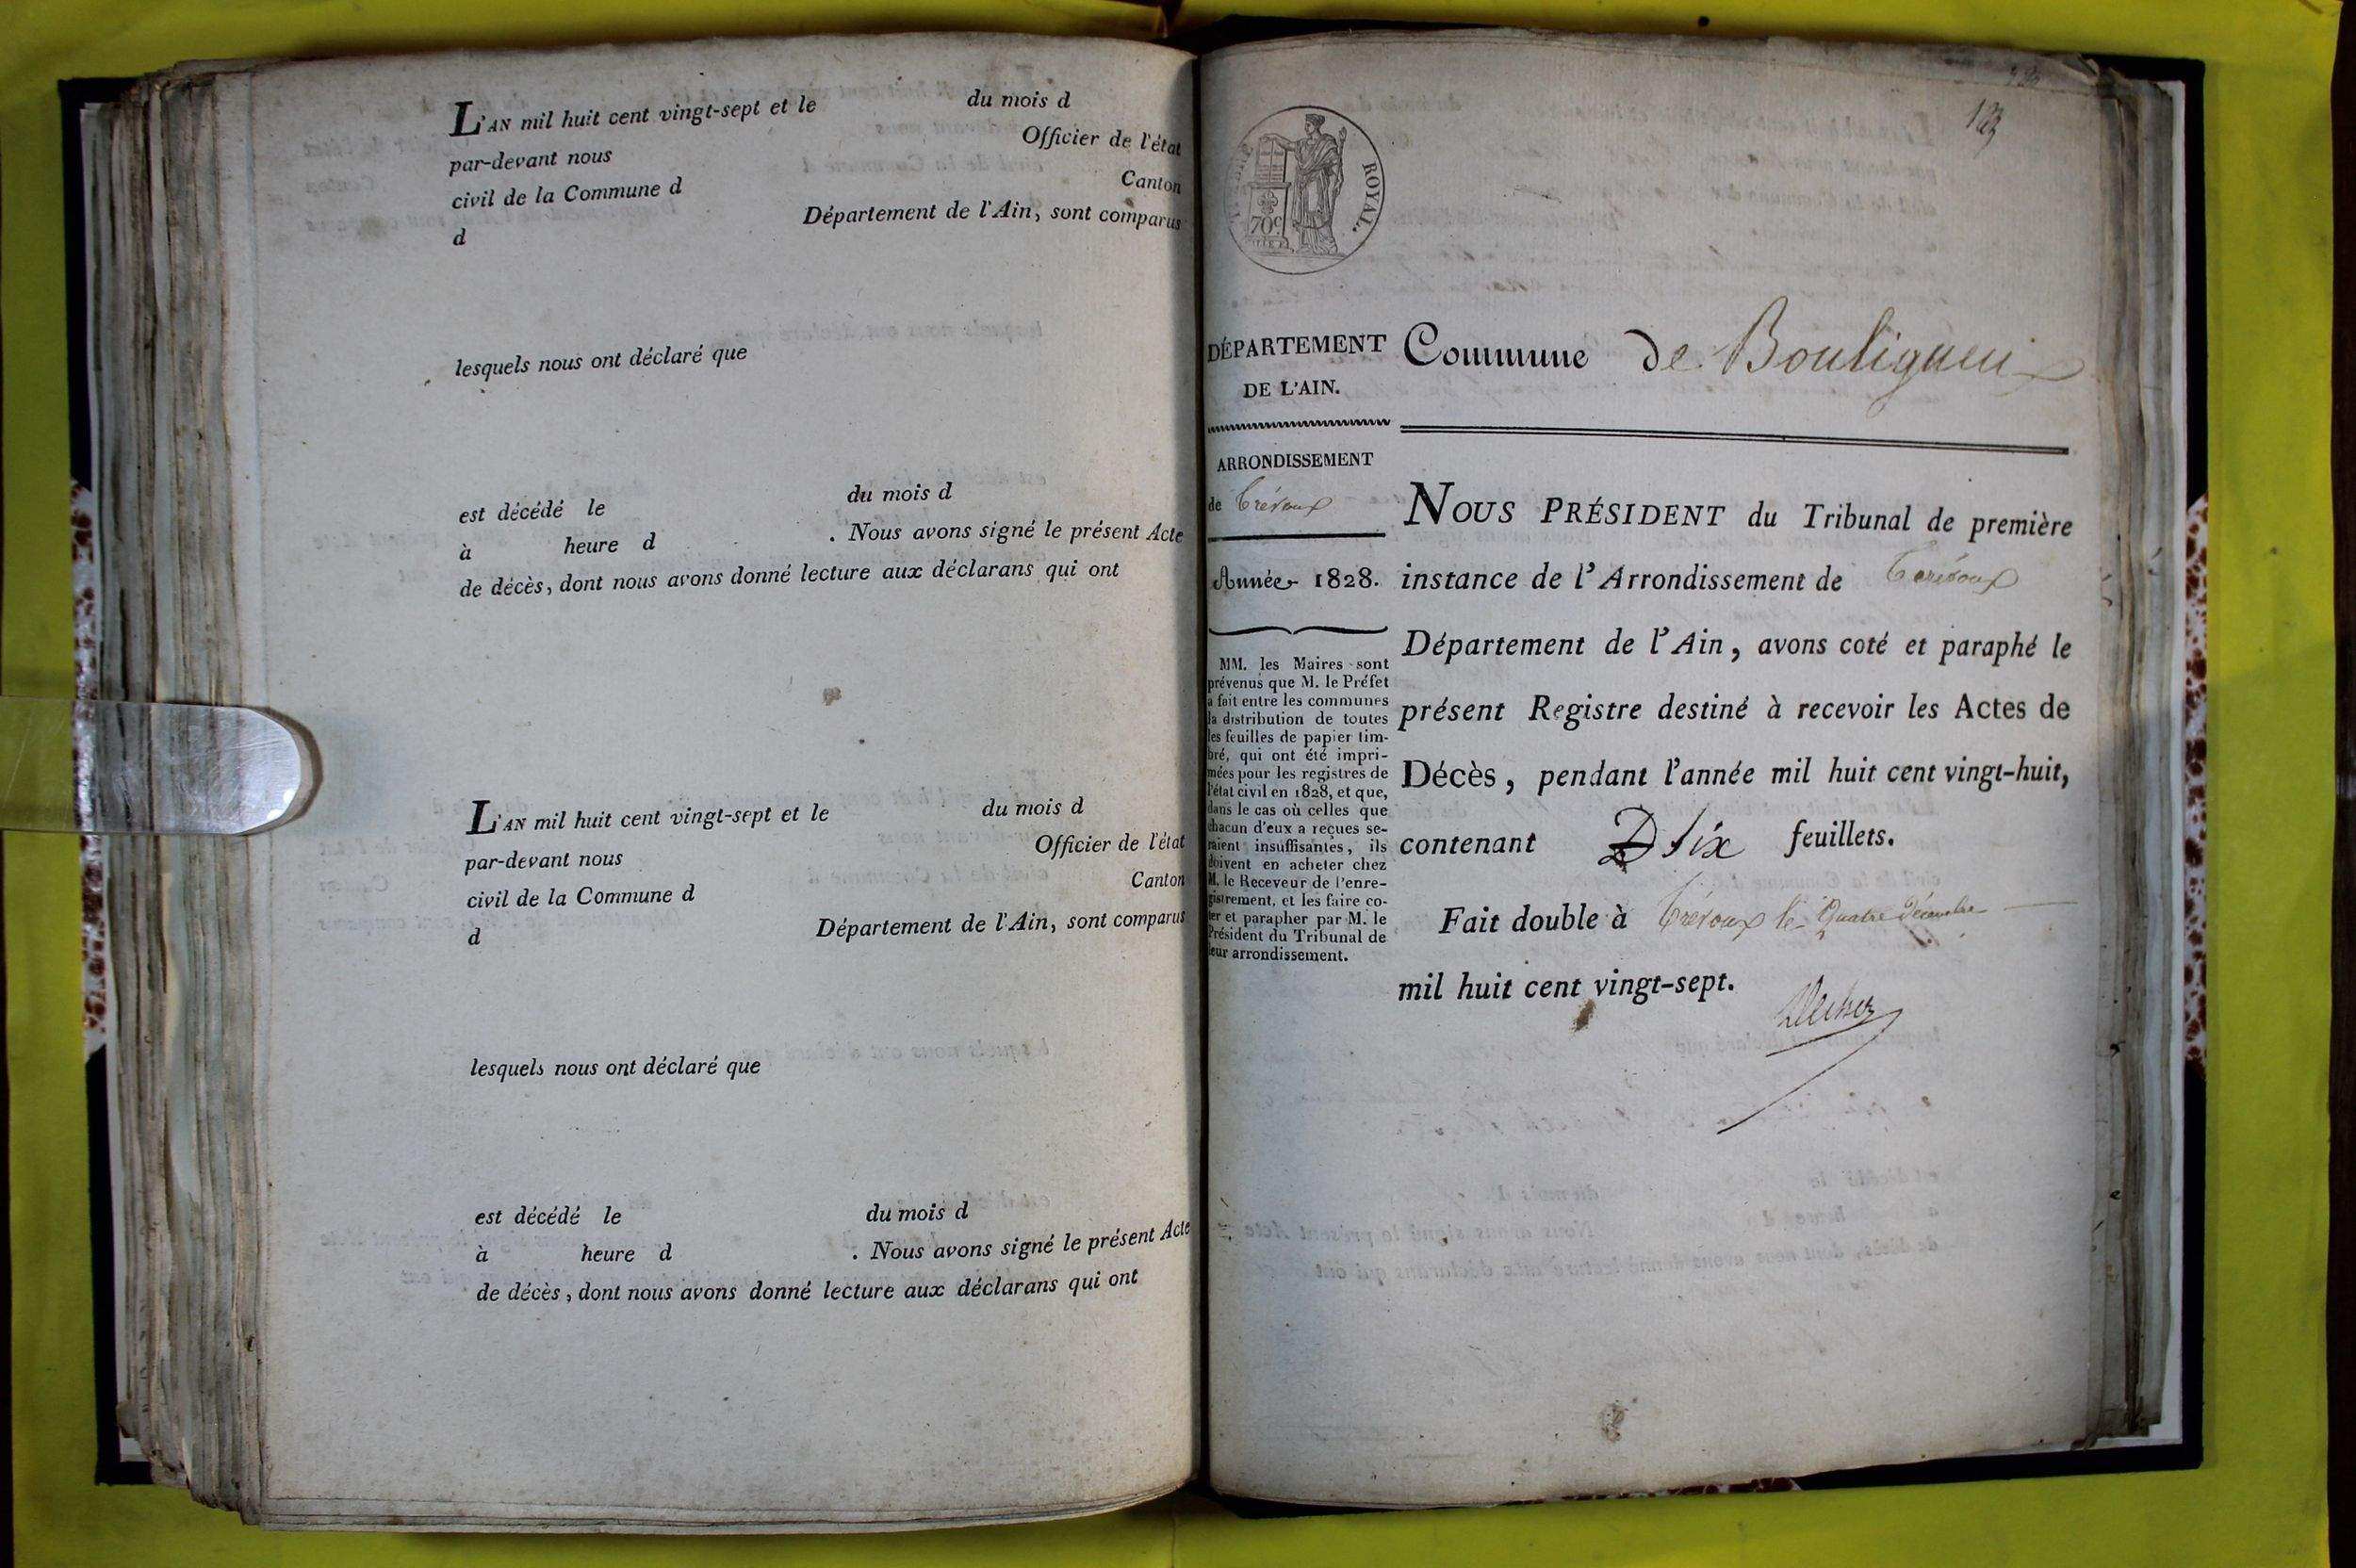 L'AN mil huit cent vingt-sept et le du mois d
par-devant nous Officier de l'état
civil de la Commune d Canton
d Département de l'Ain, sont comparus
lesquels nous ont déclaré que
est décédé le du mois d
à heure d . Nous avons signé le présent Acte
de décès, dont nous avons donné lecture aux déclarans qui ont
L'AN mil huit cent vingt-sept et le du mois d
par-devant nous Officier de l'état
civil de la Commune d Canton
d Département de l'Ain, sont comparus
lesquels nous ont déclaré que
est décédé le du mois d
à heure d . Nous avons signé le présent Acte
de décès, dont nous avons donné lecture aux déclarans qui ont
ROYAL.
70c
DÉPARTEMENT
DE L'AIN.
ARRONDISSEMENT
de Trévoux
Année 1828.
MM. les Maires sont
prévenus que M. le Préfet
a fait entre les communes
la distribution de toutes
les feuilles de papier tim-
bré, qui ont été impri-
mées pour les registres de
l'état civil en 1828, et que,
dans le cas où celles que
chacun d'eux a reçues se-
raient insuffisantes, ils
doivent en acheter chez
M. le Receveur de l'enre-
gistrement, et les faire co-
ter et parapher par M. le
Président du Tribunal de
leur arrondissement.
Commune de Bouligneux
NOUS PRÉSIDENT du Tribunal de première
instance de l'Arrondissement de Trévoux
Département de l'Ain, avons coté et paraphé le
présent Registre destiné à recevoir les Actes de
Décès, pendant l'année mil huit cent vingt-huit,
contenant Six feuillets.
Fait double à Trévoux le Quatre Décembre
mil huit cent vingt-sept.